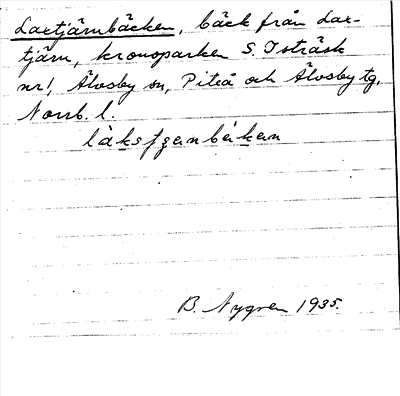 Laxtjärnbäcken, bäck från Lax-
tjärn, kronoparken S. Isträsk
nr 1, Älvsby sn, Piteå och Älvsby tg,
Norrb. l.
B. Nygren 1935.